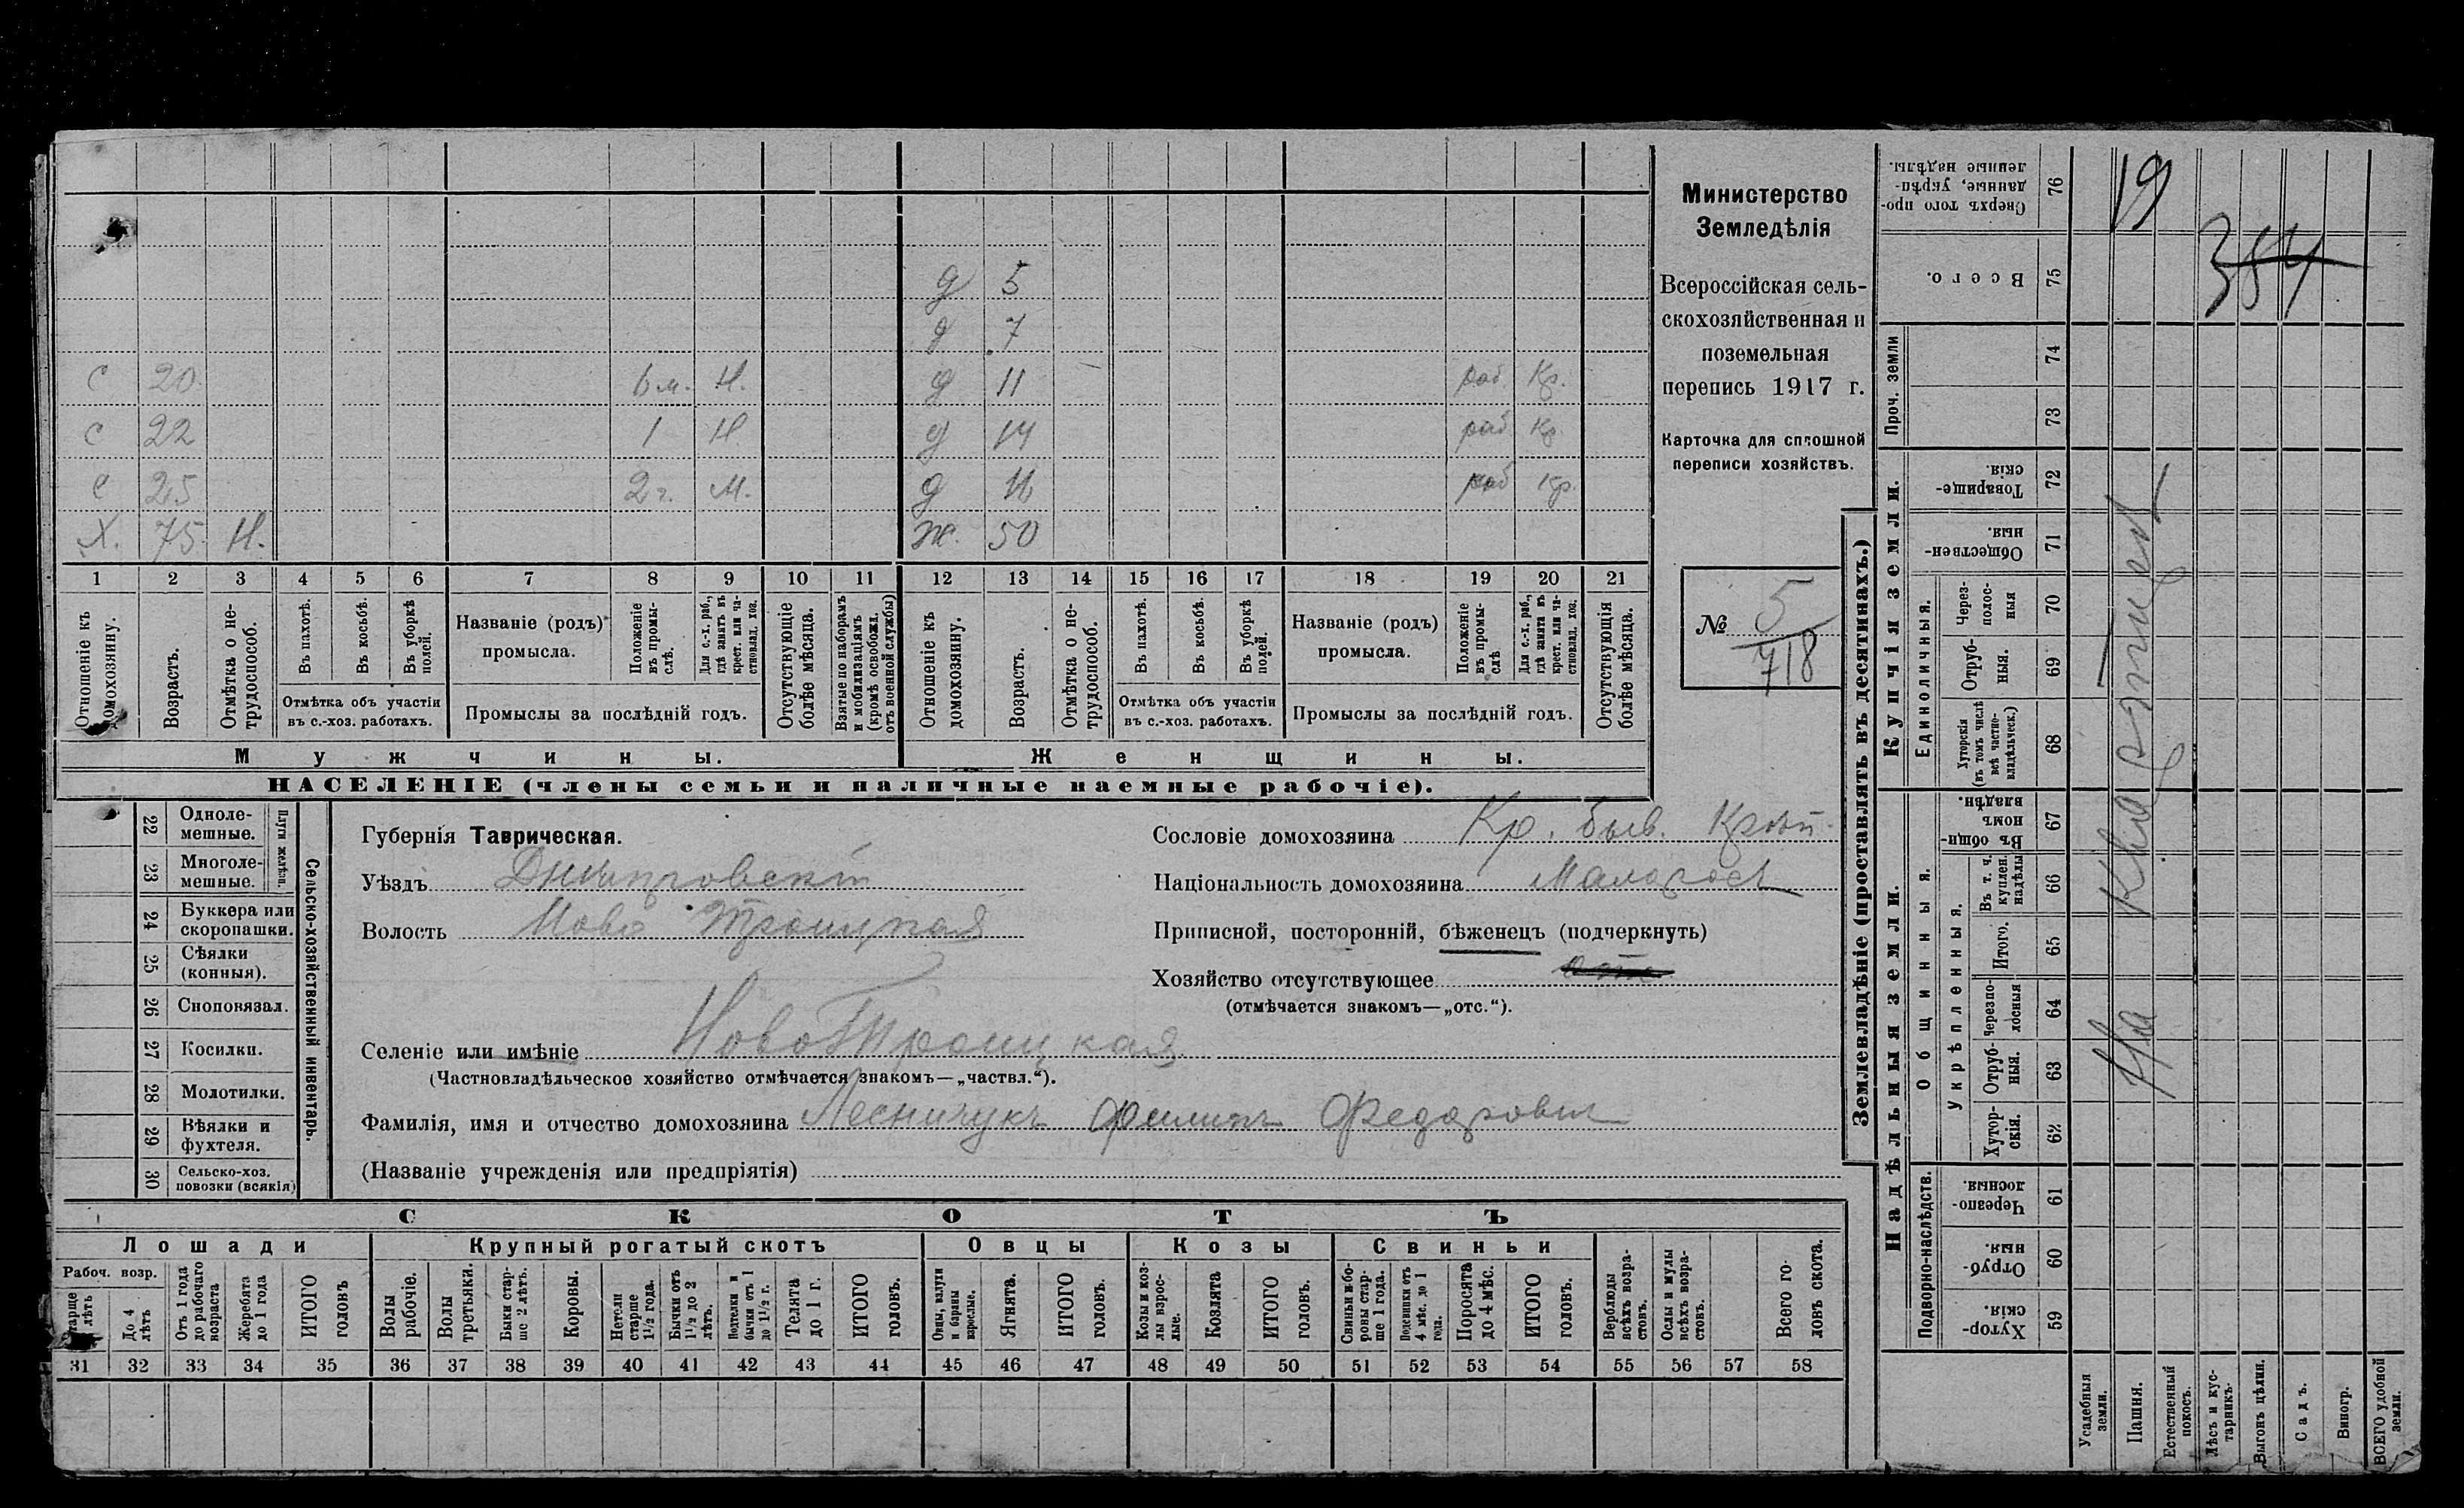 д 5
д 7
с 20 6 м. Н. д 11 раб. Кр.
с 22 1 Н д 14 раб Кр
с 25 2 г. М. д раб Кр.
Х. 75. Н. Ж. 50
1 2 3 4 5 6 7 8 9 10 11 12 13 14 15 16 17 18 19 20 21
Отношеніе къ домохозяину.
Возрастъ.
Отмѣтка о не-трудоспособ.
Въ пахотѣ.
Въ косьбѣ.
Въ уборкѣ полей.
Отмѣтка объ участіи въ с.-хоз. работахъ.
Названіе (родъ) промысла.
Положеніе въ промы-слѣ.
Для с.-х. раб., гдѣ занятъ въ крест. или ча-стновлад. хоз.
Промыслы за послѣдній годъ.
Отсутствующіе болѣе мѣсяца.
Взятые по наборамъ и мобилизаціямъ (кромѣ освобожд. отъ военной службы)
Отношеніе къ домохозяину.
Возрастъ.
Отмѣтка о не-трудоспособ.
Въ пахотѣ.
Въ косьбѣ.
Въ уборкѣ полей.
Отмѣтка объ участіи въ с.-хоз. работахъ.
Названіе (родъ) промысла.
Положеніе въ промы-слѣ
Для с.-х. раб., гдѣ занята въ крест. или ча-стновлад. хоз.
Промыслы за послѣдній годъ.
Отсутствующія болѣе мѣсяца.
Мужчины. Женщины.
НАСЕЛЕНІЕ (члены семьи и наличные наемные рабочіе).
Министерство
Земледѣлія
Всероссійская сель-
скохозяйственная и
поземельная
перепись 1917 г.
Карточка для сплошной
переписи хозяйствъ.
№ 5
718
22 Одноле-мешные.
23 Многоле-мешные.
Плуги желѣзн.
24 Буккера или скоропашки.
25 Сѣялки (конныя).
26 Сноповязал.
27 Косилки.
28 Молотилки.
29 Вѣялки и фухтеля.
30 Сельско-хоз. повозки (всякія)
Сельско-хозяйственный инвентарь.
Губернія Таврическая.
Уѣздъ Днѣпровскій
Волость Ново Троицкая
Сословіе домохозяина Кр. быв. Крѣп.
Національность домохозяина Малоросъ
Приписной, посторонній, бѣженецъ (подчеркнуть)
Хозяйство отсутствующее отс
(отмѣчается знакомъ—„отс.“).
Селеніе или имѣніе НовоТроицкая
(Частновладѣльческое хозяйство отмѣчается знакомъ—„частвл.“).
Фамилія, имя и отчество домохозяина Лесничукъ Филипъ Федорович
(Названіе учрежденія или предпріятія)
СКОТЪ
Лошади Крупный рогатый скотъ Овцы Козы Свиньи
Рабоч. возр.
Старше лѣтъ
До 4 лѣтъ
Отъ 1 года до рабочаго возраста
Жеребята до 1 года
ИТОГО головъ
Волы рабочіе.
Волы третьяки.
Быки стар-ше 2 лѣтъ.
Коровы.
Нетели старше 1½ года.
Бычки отъ 1½ до 2 лѣтъ.
Подтелки и бычки отъ 1 до 1½ г.
Телята до 1 г.
ИТОГО головъ.
Овцы, валухи и бараны взрослые.
Ягнята.
ИТОГО головъ.
Козы и коз-лы взрос-лые.
Козлята
ИТОГО головъ.
Свиньи и бо-ровы стар-ше 1 года.
Подсвинки отъ 4 мѣс. до 1 года.
Поросята до 4 мѣс.
ИТОГО головъ.
Верблюды всѣхъ возра-стовъ.
Ослы и мулы всѣхъ возра-стовъ.
Всего го-ловъ скота.
31 32 33 34 35 36 37 38 39 40 41 42 43 44 45 46 47 48 49 50 51 52 53 54 55 56 57 58
Землевладѣніе (проставлять въ десятинахъ.)
Купчія земли.
Надѣльныя земли.
Сверхъ того про-данные, укрѣп-ленные надѣлы. 76
Всего. 75
Проч. земли 74 73
Товарище-скія. 72
Обществен-ныя 71
Единоличныя.
Через-полос-ныя 70
Отруб-ныя. 69
Хуторскія (въ томъ числѣ всѣ частно-владѣльческ.) 68
Общинныя.
Въ общин-номъ владѣн. 67
Укрѣпленныя.
Въ т. ч. куплен. надѣлы 66
Итого. 65
Черезпо-лосныя 64
Отруб-ныя. 63
Хутор-скія. 62
Подворно-наслѣдств.
Черезпо-лосныя. 61
Отруб-ныя. 60
Хутор-скія. 59
Усадебныя земли.
Пашня.
Естественный покосъ.
Лѣсъ и кус-тарникъ.
Выгонъ цѣлин.
Садъ.
Виногр.
ВСЕГО удобной земли.
19
384
На Квартирѣ